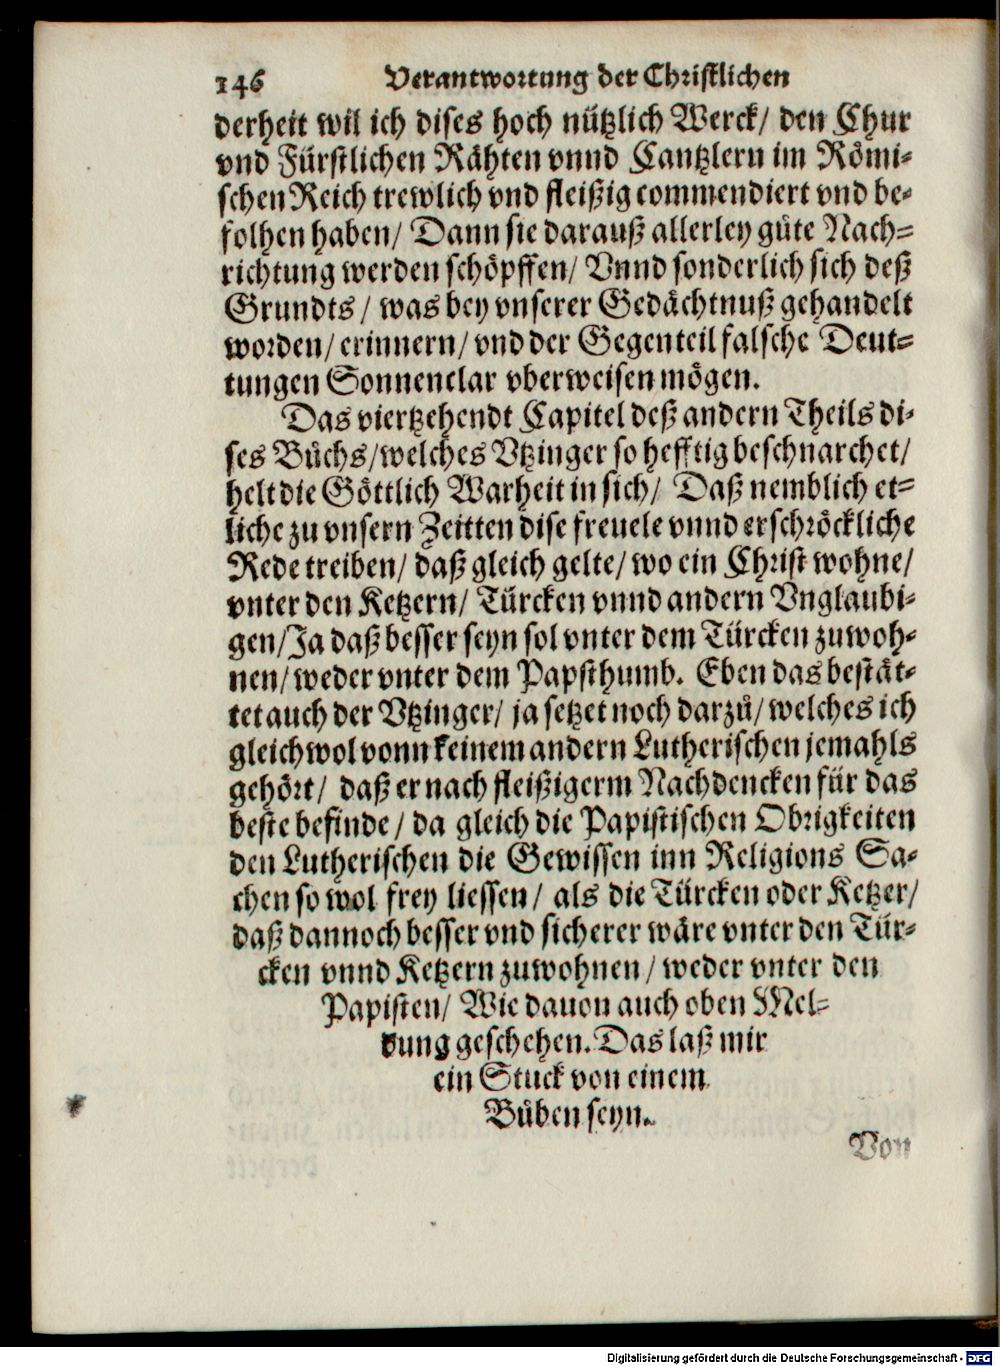 146 Verantwortung der Christlichen
derheit wil ich dises hoch nützlich Werck/ den Chur
vnd Fürstlichen Rähten vnnd Cantzlern im Römi-
schen Reich trewlich vnd fleißig commendiert vnd be-
folhen haben/ Dann sie darauß allerley gůte Nach-
richtung werden schöpffen/ Vnnd sonderlich sich deß
Grundts/ was bey vnserer Gedächtnuß gehandelt
worden/ erinnern/ vnd der Gegenteil falsche Deut-
tungen Sonnenclar vberweisen mögen.
Das viertzehendt Capitel deß andern Theils di-
ses Bůchs/ welches Vtzinger so hefftig beschnarchet/
helt die Göttlich Warheit in sich/ Daß nemblich et-
liche zu vnsern Zeitten dise freuele vnnd erschröckliche
Rede treiben/ daß gleich gelte/ wo ein Christ wohne/
vnter den Ketzern/ Türcken vnnd andern Vnglaubi-
gen/ Ja daß besser seyn sol vnter dem Türcken zuwoh-
nen/ weder vnter dem Papsthumb. Eben das bestät-
tet auch der Vtzinger/ ja setzet noch darzů/ welches ich
gleichwol vonn keinem andern Lutherischen jemahls
gehört/ daß er nach fleißigerm Nachdencken für das
beste befinde/ da gleich die Papistischen Obrigkeiten
den Lutherischen die Gewissen inn Religions Sa-
chen so wol frey liessen/ als die Türcken oder Ketzer/
daß dannoch besser vnd sicherer wäre vnter den Tür-
cken vnnd Ketzern zuwohnen/ weder vnter den
Papisten/ Wie dauon auch oben Mel-
dung geschehen. Das laß mir
ein Stuck von einem
Bůben seyn.
Von
Digitalisierung gefördert durch die Deutsche Forschungsgemeinschaft - DFG